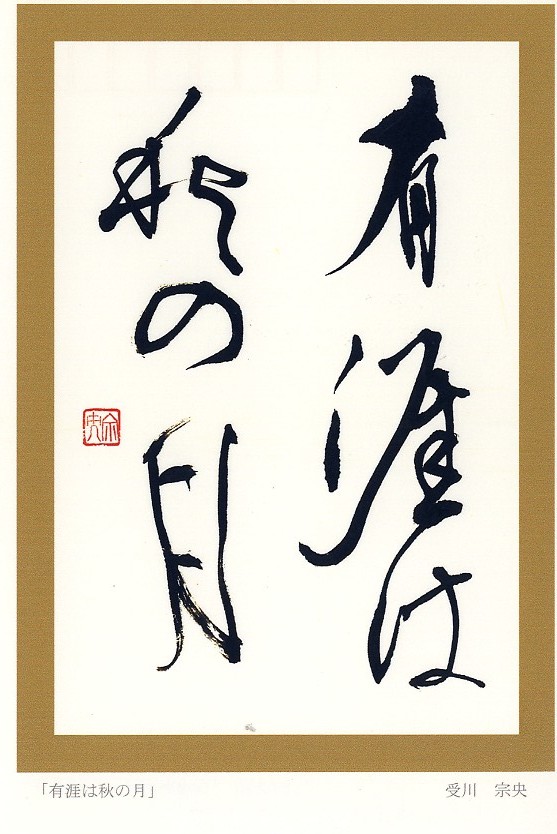 有涯は
秋の月
宗央
「有涯は秋の月」
受川 宗央